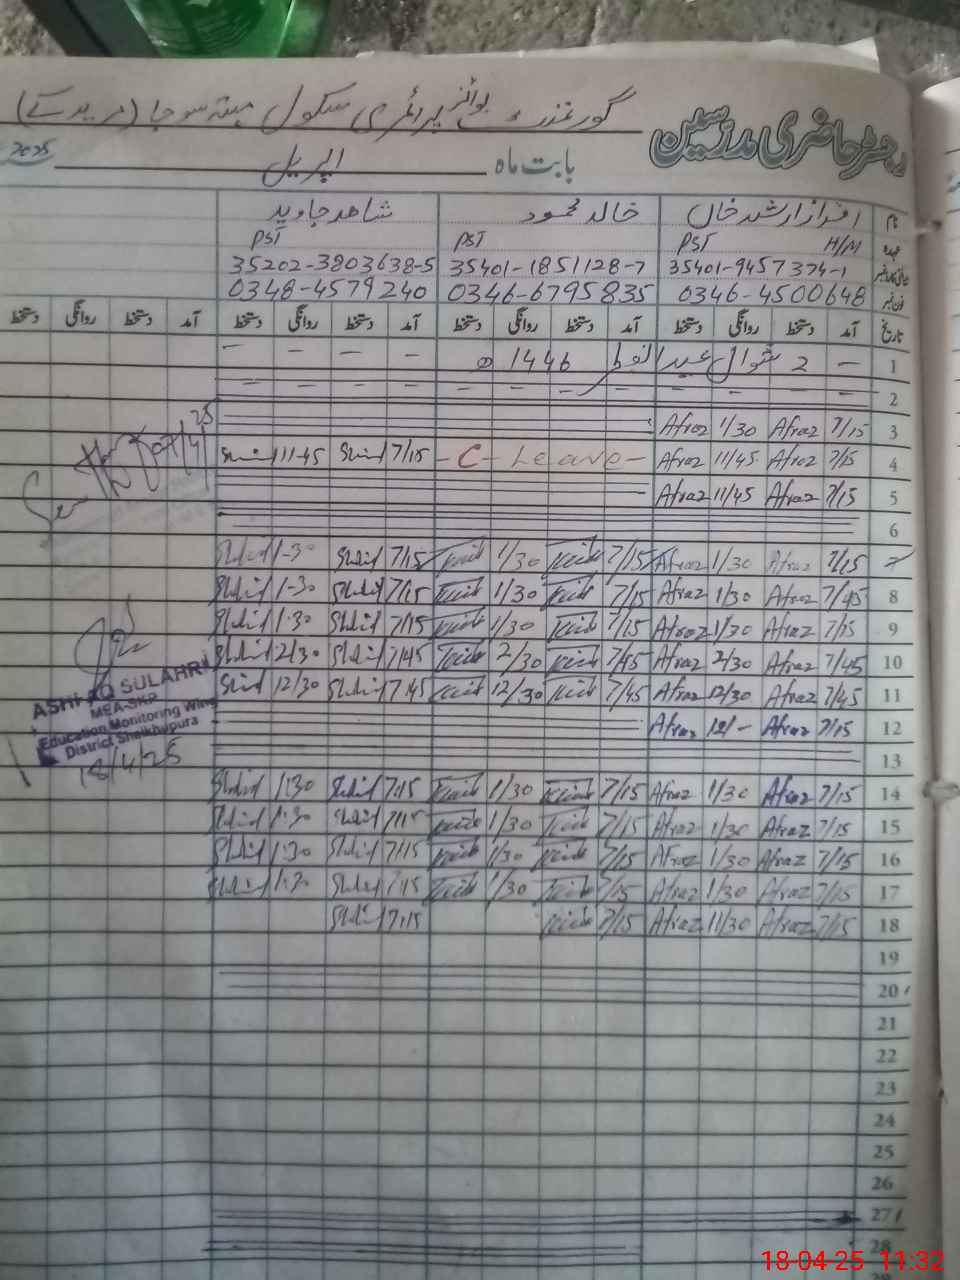 رجسٹر حاضری مدرسین
گورنمنٹ بوائز پرائمری سکول
بابت ماہ اپریل 2025
نام افراز ارشد خان خالد محمود شاھد جاوید
عہدہ H/M PST PST PST
35401-9457374-1 35401-1851128-7 35202-3803638-5
فون نمبر 0346-4500648 0346-6795835 0348-4579240
تاریخ آمد دستخط روانگی دستخط آمد دستخط روانگی دستخط آمد دستخط روانگی دستخط آمد دستخط روانگی دستخط
1 — 2 شوال عید الفطر 1446 ھ — — — —
2 — — — — — — — — — — —
3 7/15 Afraz 1/30 Afraz
4 7/15 Afraz 11/45 Afraz - C - Leave - 7/15 Shahid 11-45 Shahid
5 7/15 Afraz 11/45 Afraz
6
7 7/15 Afraz 1/30 Afraz 7/15 1/30 7/15 Shahid 1-30 Shahid
8 7/45 Afraz 1/30 Afraz 7/15 1/30 7/15 Shahid 1-30 Shahid
9 7/15 Afraz 1/30 Afraz 7/15 1/30 7/15 Shahid 1-30 Shahid
10 7/45 Afraz 2/30 Afraz 7/45 2/30 7/45 Shahid 2/30 Shahid
11 7/45 Afraz 12/30 Afraz 7/45 12/30 7/45 Shahid 12/30 Shahid
12 7/15 Afraz 12/- Afraz
13
14 7/15 Afraz 1/30 Afraz 7/15 1/30 7/15 Shahid 1:30 Shahid
15 7/15 Afraz 1/30 Afraz 7/15 1/30 7/15 Shahid 1:30 Shahid
16 7/15 Afraz 1/30 Afraz 7/15 1/30 7/15 Shahid 1:30 Shahid
17 7/15 Afraz 1/30 Afraz 7/15 1/30 7/15 Shahid 1:30 Shahid
18 7/15 Afraz 11/30 Afraz 7/15 7:15 Shahid
19
20
21
22
23
24
25
26
27
28
ASHFAQ SULAHRI
MEA-SKP
Education Monitoring Wing
District Sheikhupura
18/4/25
18-04-25 11:32